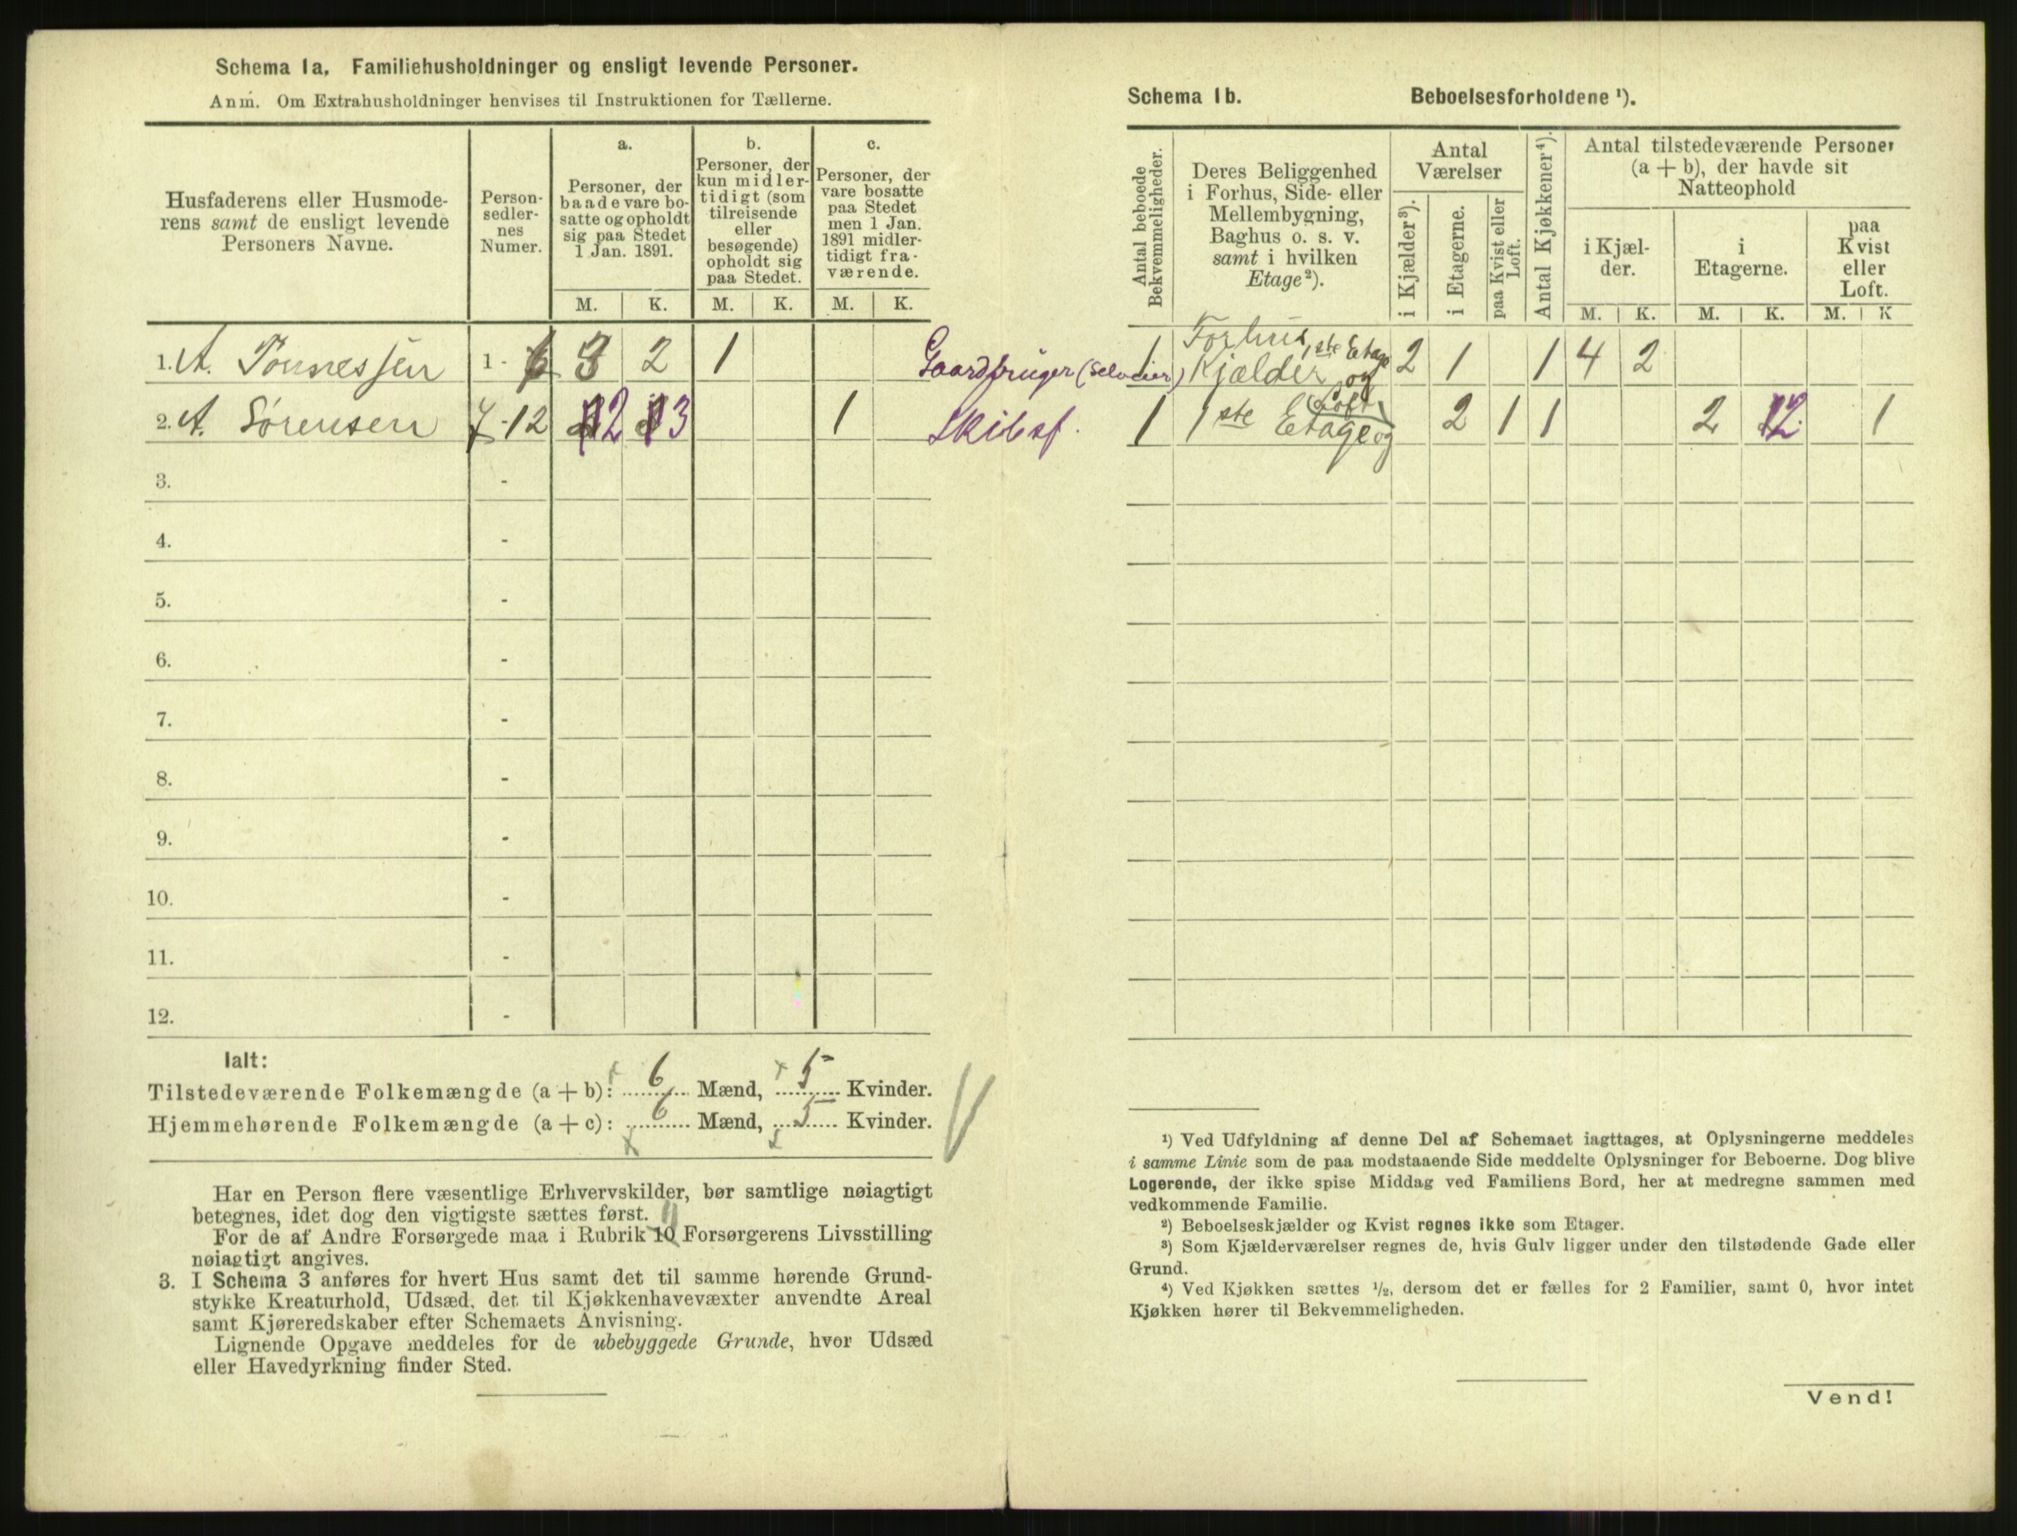 Schema 1a. Familiehusholdninger og ensligt levende Personer.
Anm. Om Extrahusholdninger henvises til Instruktionen for Tællerne.
Husfaderens eller Husmode-
rens samt de ensligt levende
Personers Navne.
Person-
sedler-
nes
Numer.
a.
Personer, der
baade vare bo-
satte og opholdt
sig paa Stedet
1 Jan. 1891.
b.
Personer, der
kun midler-
tidigt (som
tilreisende
eller
besøgende)
opholdt sig
paa Stedet.
c.
Personer, der
vare bosatte
paa Stedet
men 1 Jan.
1891 midler-
tidigt fra-
værende.
M. K. M. K. M. K.
1. A. Tønnessen 1 - 6 3 2 1 Gaardbruger (Selveier)
2. A. Sørensen 7 - 12 2 3 1 Skibsf.
3. -
4. -
5. -
6. -
7. -
8. -
9. -
10. -
11. -
12. -
Ialt:
Tilstedeværende Folkemængde (a + b): 6 Mænd, 5 Kvinder.
Hjemmehørende Folkemængde (a + c): 6 Mænd, 5 Kvinder.
Har en Person flere væsentlige Erhvervskilder, bør samtlige nøiagtigt
betegnes, idet dog den vigtigste sættes først.
For de af Andre Forsørgede maa i Rubrik 10 Forsørgerens Livsstilling
nøiagtigt angives.
3. I Schema 3 anføres for hvert Hus samt det til samme hørende Grund-
stykke Kreaturhold, Udsæd, det til Kjøkkenhavevæxter anvendte Areal
samt Kjøreredskaber efter Schemaets Anvisning.
Lignende Opgave meddeles for de ubebyggede Grunde, hvor Udsæd
eller Havedyrkning finder Sted.
Schema 1b. Beboelsesforholdene ¹).
Antal beboede
Bekvemmeligheder.
Deres Beliggenhed
i Forhus, Side- eller
Mellembygning,
Baghus o. s. v.
samt i hvilken
Etage²).
Antal
Værelser
i Kjælder³).
i Etagerne.
paa Kvist eller
Loft.
Antal Kjøkkener⁴).
Antal tilstedeværende Personer
(a + b), der havde sit
Natteophold
i Kjæl-
der.
i
Etagerne.
paa
Kvist
eller
Loft.
M. K. M. K. M. K
Forhus, 1ste Etage
1 Kjælder og 2 1 1 4 2
Loft
1 1ste Etage og 2 1 1 2 2 1
¹) Ved Udfyldning af denne Del af Schemaet iagttages, at Oplysningerne meddeles
i samme Linie som de paa modstaaende Side meddelte Oplysninger for Beboerne. Dog blive
Logerende, der ikke spise Middag ved Familiens Bord, her at medregne sammen med
vedkommende Familie.
²) Beboelseskjælder og Kvist regnes ikke som Etager.
³) Som Kjælderværelser regnes de, hvis Gulv ligger under den tilstødende Gade eller
Grund.
⁴) Ved Kjøkken sættes ½, dersom det er fælles for 2 Familier, samt 0, hvor intet
Kjøkken hører til Bekvemmeligheden.
Vend!